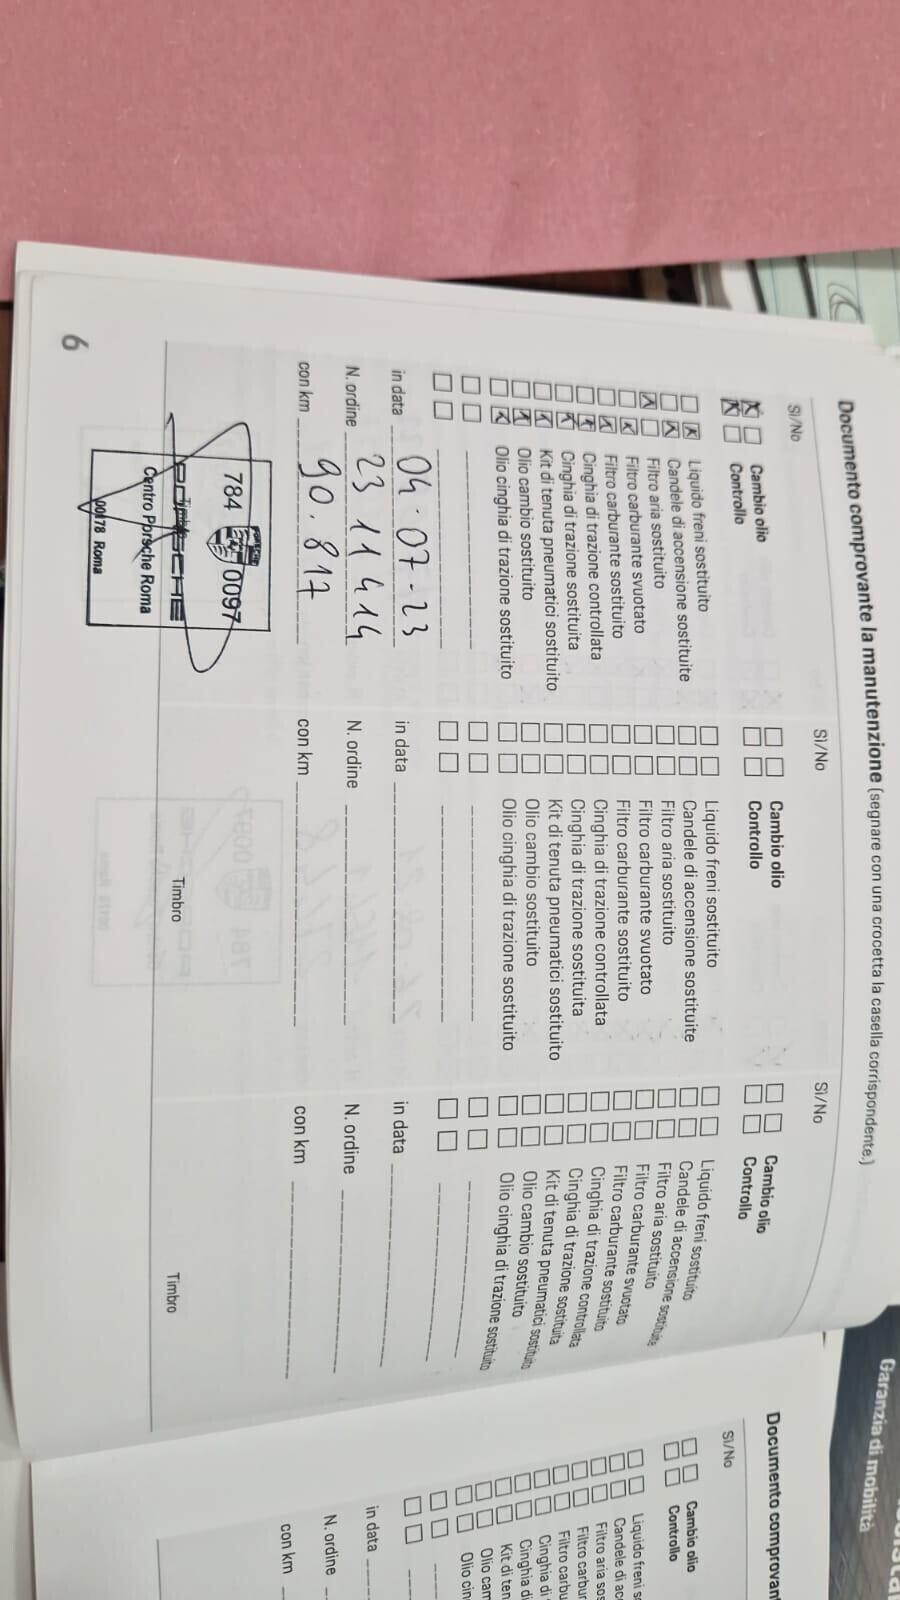 Documento comprovante la manutenzione (segnare con una crocetta la casella corrispondente.)
Sì/No
Cambio olio
Controllo
Liquido freni sostituito
Candele di accensione sostituite
Filtro aria sostituito
Filtro carburante svuotato
Filtro carburante sostituito
Cinghia di trazione controllata
Cinghia di trazione sostituita
Kit di tenuta pneumatici sostituito
Olio cambio sostituito
Olio cinghia di trazione sostituito
in data 04-07-23
N. ordine 2311414
con km 90.817
784 0097
Timbro
PORSCHE
Centro Porsche Roma
00178 Roma
Sì/No
Cambio olio
Controllo
Liquido freni sostituito
Candele di accensione sostituite
Filtro aria sostituito
Filtro carburante svuotato
Filtro carburante sostituito
Cinghia di trazione controllata
Cinghia di trazione sostituita
Kit di tenuta pneumatici sostituito
Olio cambio sostituito
Olio cinghia di trazione sostituito
in data
N. ordine
con km
Timbro
Sì/No
Cambio olio
Controllo
Liquido freni sostituito
Candele di accensione sostituite
Filtro aria sostituito
Filtro carburante svuotato
Filtro carburante sostituito
Cinghia di trazione controllata
Cinghia di trazione sostituita
Kit di tenuta pneumatici sostituito
Olio cambio sostituito
Olio cinghia di trazione sostituito
in data
N. ordine
con km
Timbro
6
Garanzia di mobilità
Documento comprovant
Sì/No
Cambio olio
Controllo
Liquido freni s
Candele di ac
Filtro aria sos
Filtro carbur
Filtro carbu
Cinghia di
Cinghia di
Kit di ten
Olio cam
Olio cin
in data
N. ordine
con km